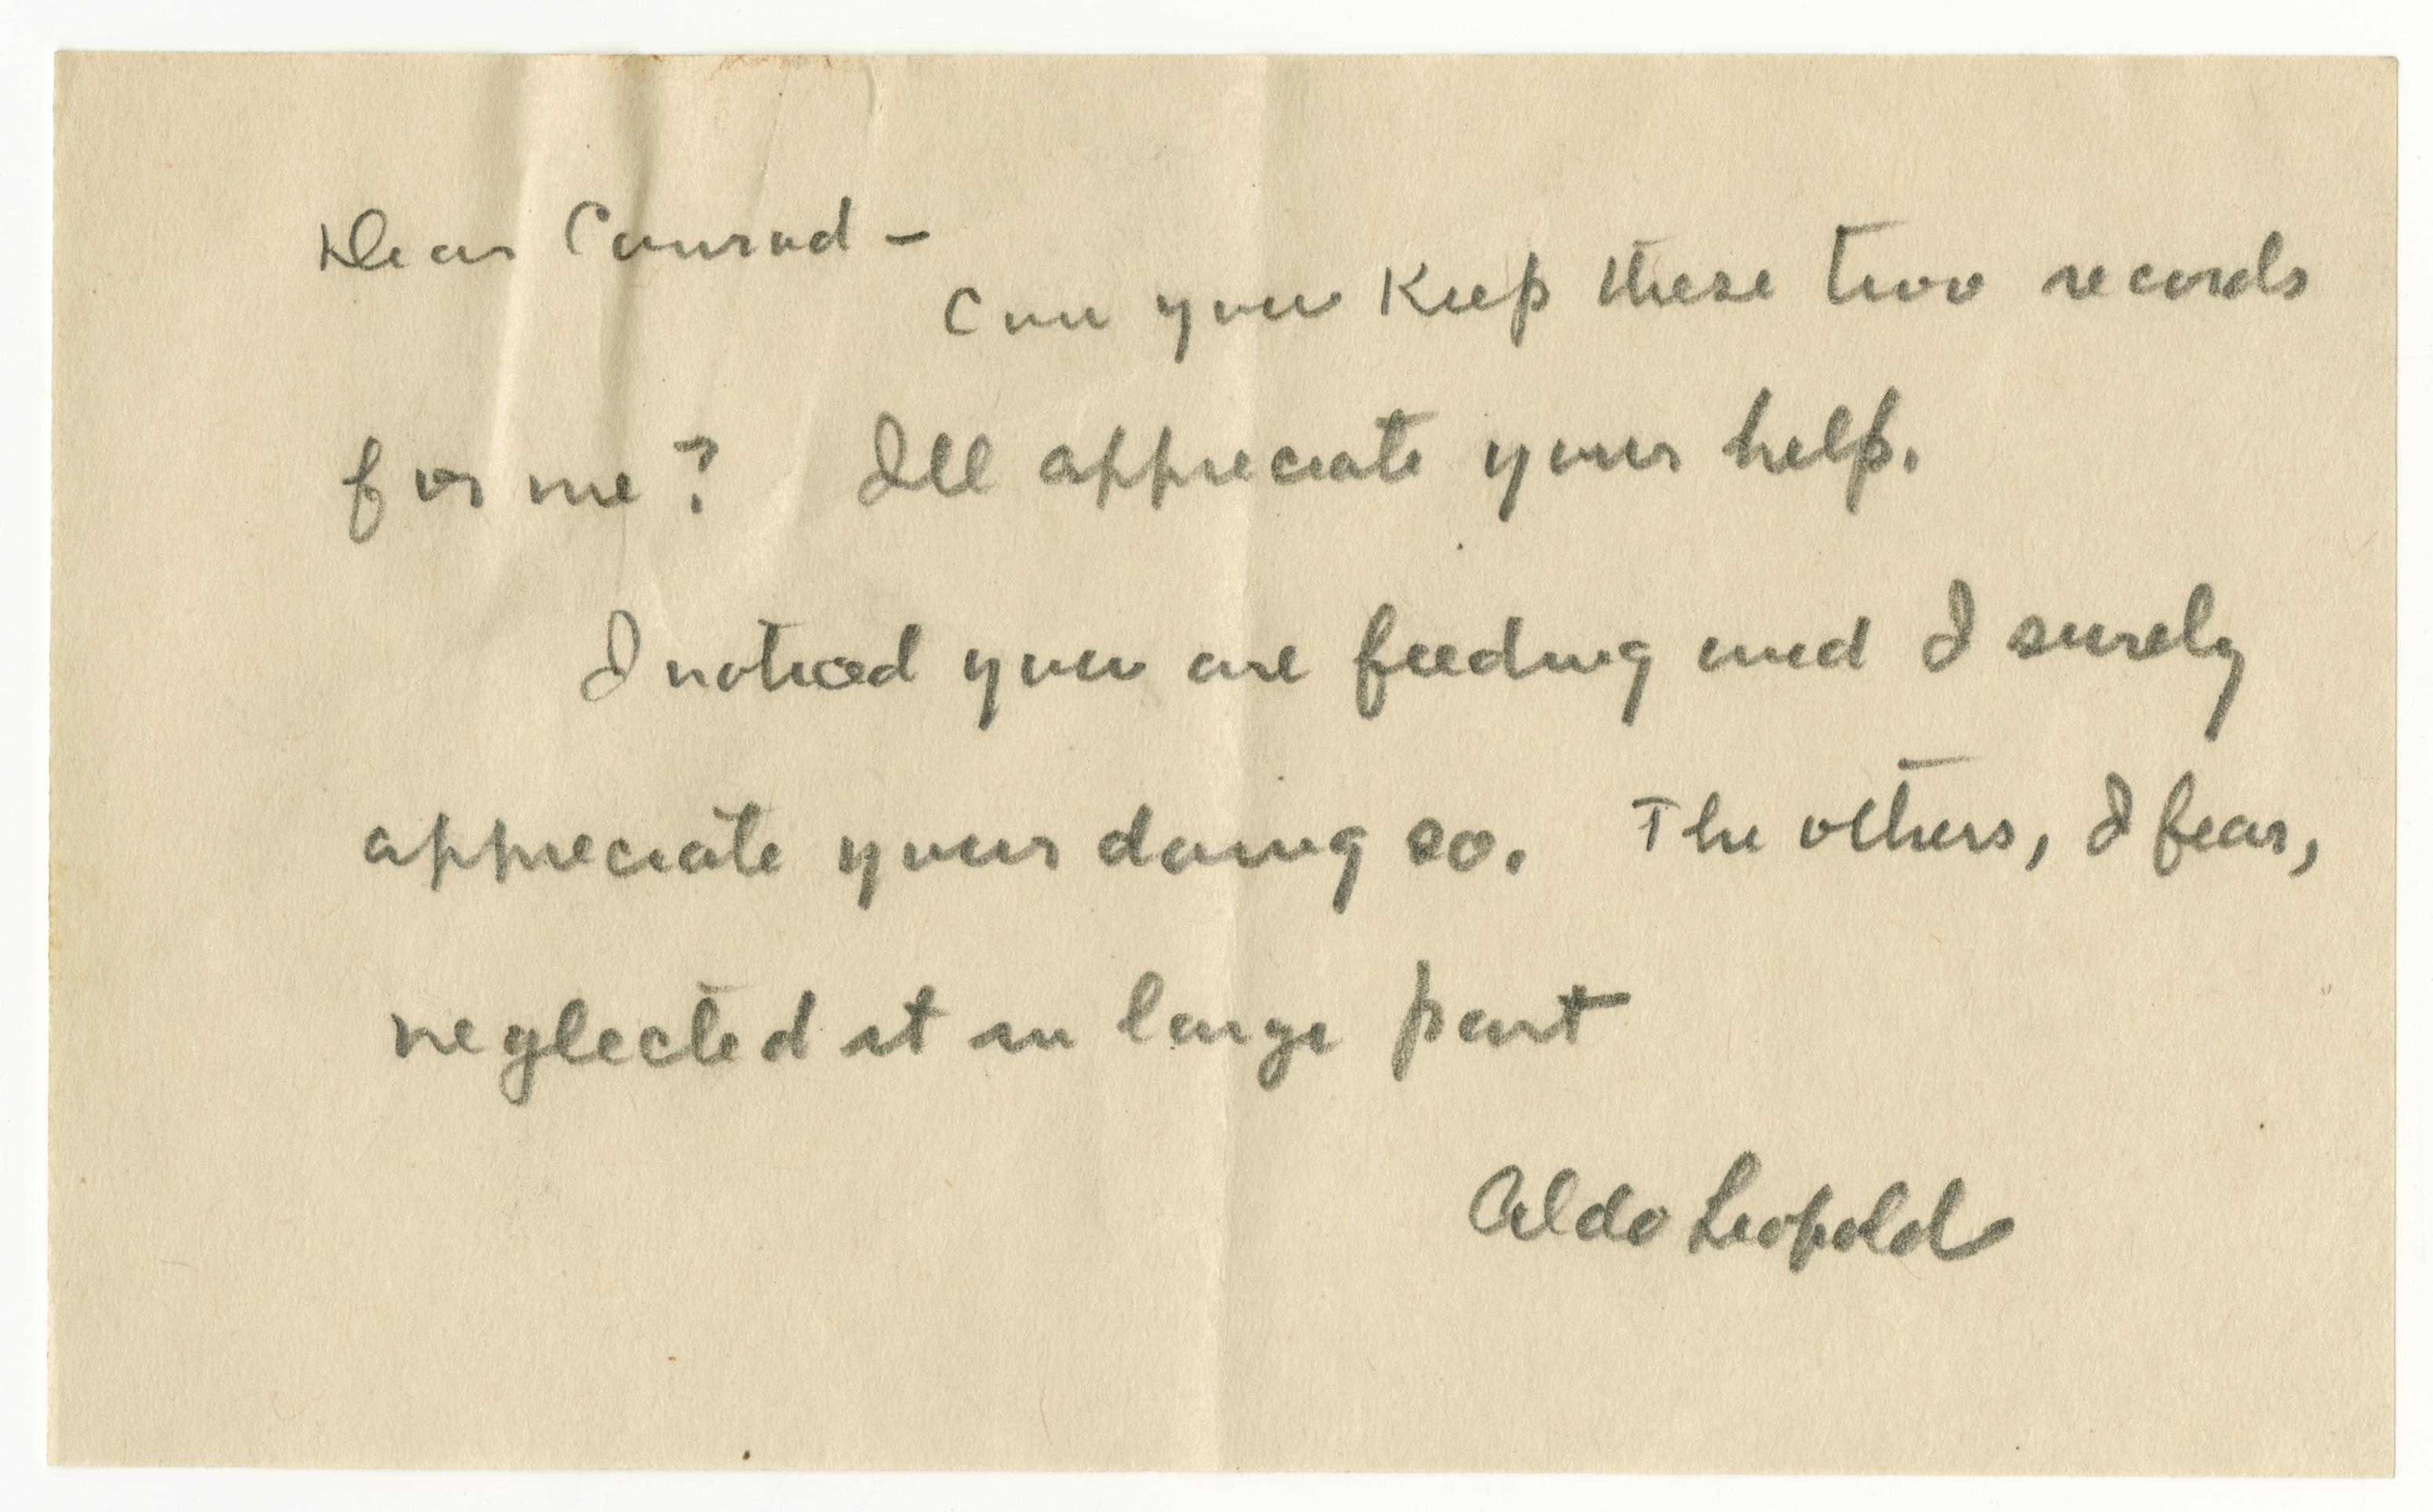 Dear Conrad –
Can you keep these two records
for me? Ill appreciate your help.
I noticed you are feeding and I surely
appreciate your doing so. The others, I fear,
neglected it in large part
Aldo Leopold